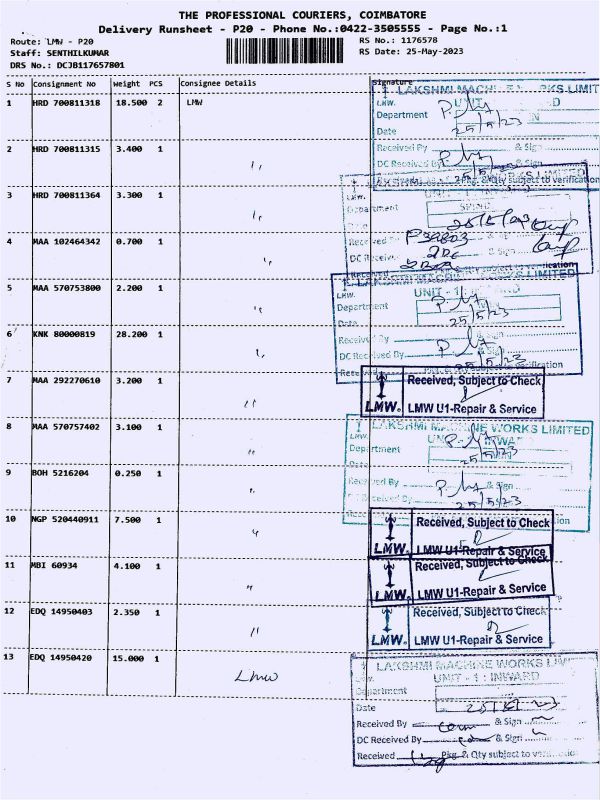 THE PROFESSIONAL COURIERS, COIMBATORE
Delivery Runsheet - P20 - Phone No.:0422-3505555 - Page No.:1
Route: LMW - P20
RS No.: 1176578
Staff: SENTHILKUMAR
RS Date: 25-May-2023
DRS No.: DCJB117657801
S No Consignment No Weight PCS Consignee Details Signature
1 HRD 700811318 18.500 2 LMW
2 HRD 700811315 3.400 1 "
3 HRD 700811364 3.300 1 "
4 MAA 102464342 0.700 1 "
5 MAA 570753800 2.200 1 "
6 KNK 80000819 28.200 1 "
7 MAA 292270610 3.200 1 "
8 MAA 570757402 3.100 1 "
9 BOH 5216204 0.250 1 "
10 NGP 520440911 7.500 1 "
11 MBI 60934 4.100 1 "
12 EDQ 14950403 2.350 1 "
13 EDQ 14950420 15.000 1 LMW
LAKSHMI MACHINE WORKS LIMIT
LMW.
Department
Date 25/5/23
Received By & Sign
DC Received By
Pkg. & Qty subject to verification
LAKSHMI
Department
Received By P39803
DC Received & Sign
Received
LIMITED
LMW. UNIT - 1
Department
Date 25/5/23
Received By & Sign
DC Received By 25/5/23
Received Pkg. & Qty subject to verification
Received, Subject to Check
LMW. LMW U1-Repair & Service
LAKSHMI MACHINE WORKS LIMITED
LMW. INWARD
Department
25/5/23
& Sign
DC Received By 25/5/23
Received, Subject to Check
LMW. LMW U1-Repair & Service
Received, Subject to Check
LMW. LMW U1-Repair & Service
Received, Subject to Check
LMW. LMW U1-Repair & Service
LAKSHMI MACHINE WORKS
LMW. UNIT - 1 : INWARD
Department
Date
Received By & Sign
DC Received By & Sign
Received Pkg. & Qty subject to